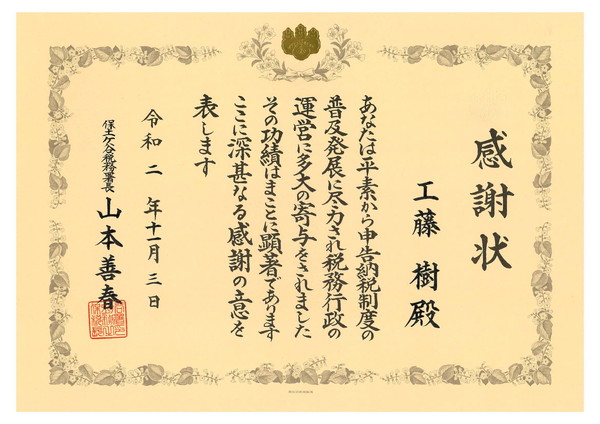 感謝状
工藤樹殿
あなたは平素から申告納税制度の
普及発展に尽力され税務行政の
運営に多大の寄与をされました
その功績はまことに顕著であります
ここに深甚なる感謝の意を
表します
令和二年十一月三日
保土ケ谷税務署長
山本善春